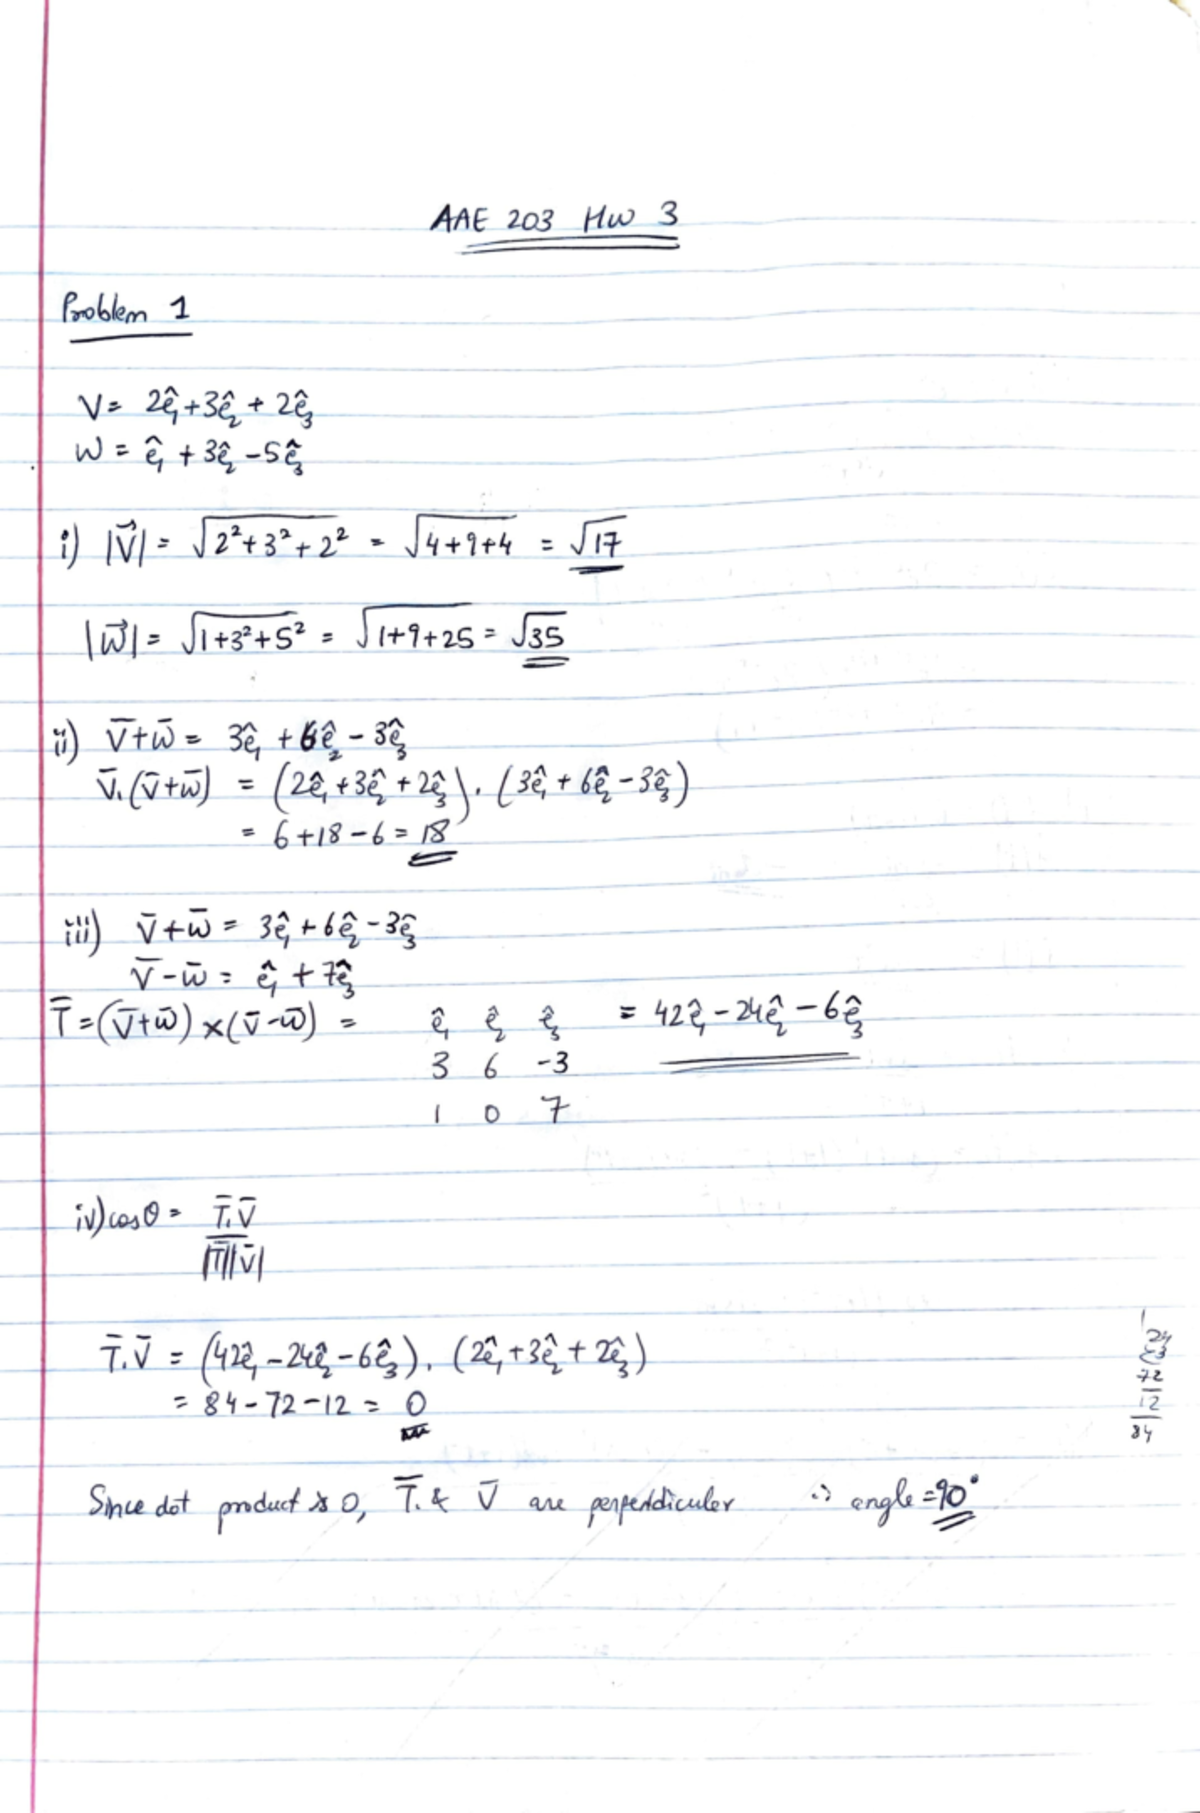 AAE 203 HW 3
Problem 1
V = 2ê₁+3ê₂ + 2ê₃
W = ê₁ + 3ê₂ -5ê₃
i) |V⃗| = √(2²+3²+2²) = √(4+9+4) = √17
|W⃗| = √(1+3²+5²) = √(1+9+25) = √35
ii) V̄+w̄ = 3ê₁ +6ê₂ - 3ê₃
V̄.(V̄+w̄) = (2ê₁+3ê₂+2ê₃).(3ê₁+6ê₂-3ê₃)
= 6+18-6 = 18
iii) V̄+w̄ = 3ê₁+6ê₂-3ê₃
V̄-w̄ = ê₁ + 7ê₃
T̄=(V̄+w̄)×(V̄-w̄) = ê₁ ê₂ ê₃ = 42ê₁-24ê₂-6ê₃
3 6 -3
1 0 7
iv) cosθ = T̄.V̄
|T̄||V̄|
T̄.V̄ = (42ê₁-24ê₂-6ê₃).(2ê₁+3ê₂+2ê₃)
= 84-72-12 = 0
1
24
3
72
12
84
Since dot product is 0, T̄. & V̄ are perpendiculer ∴ angle =90°